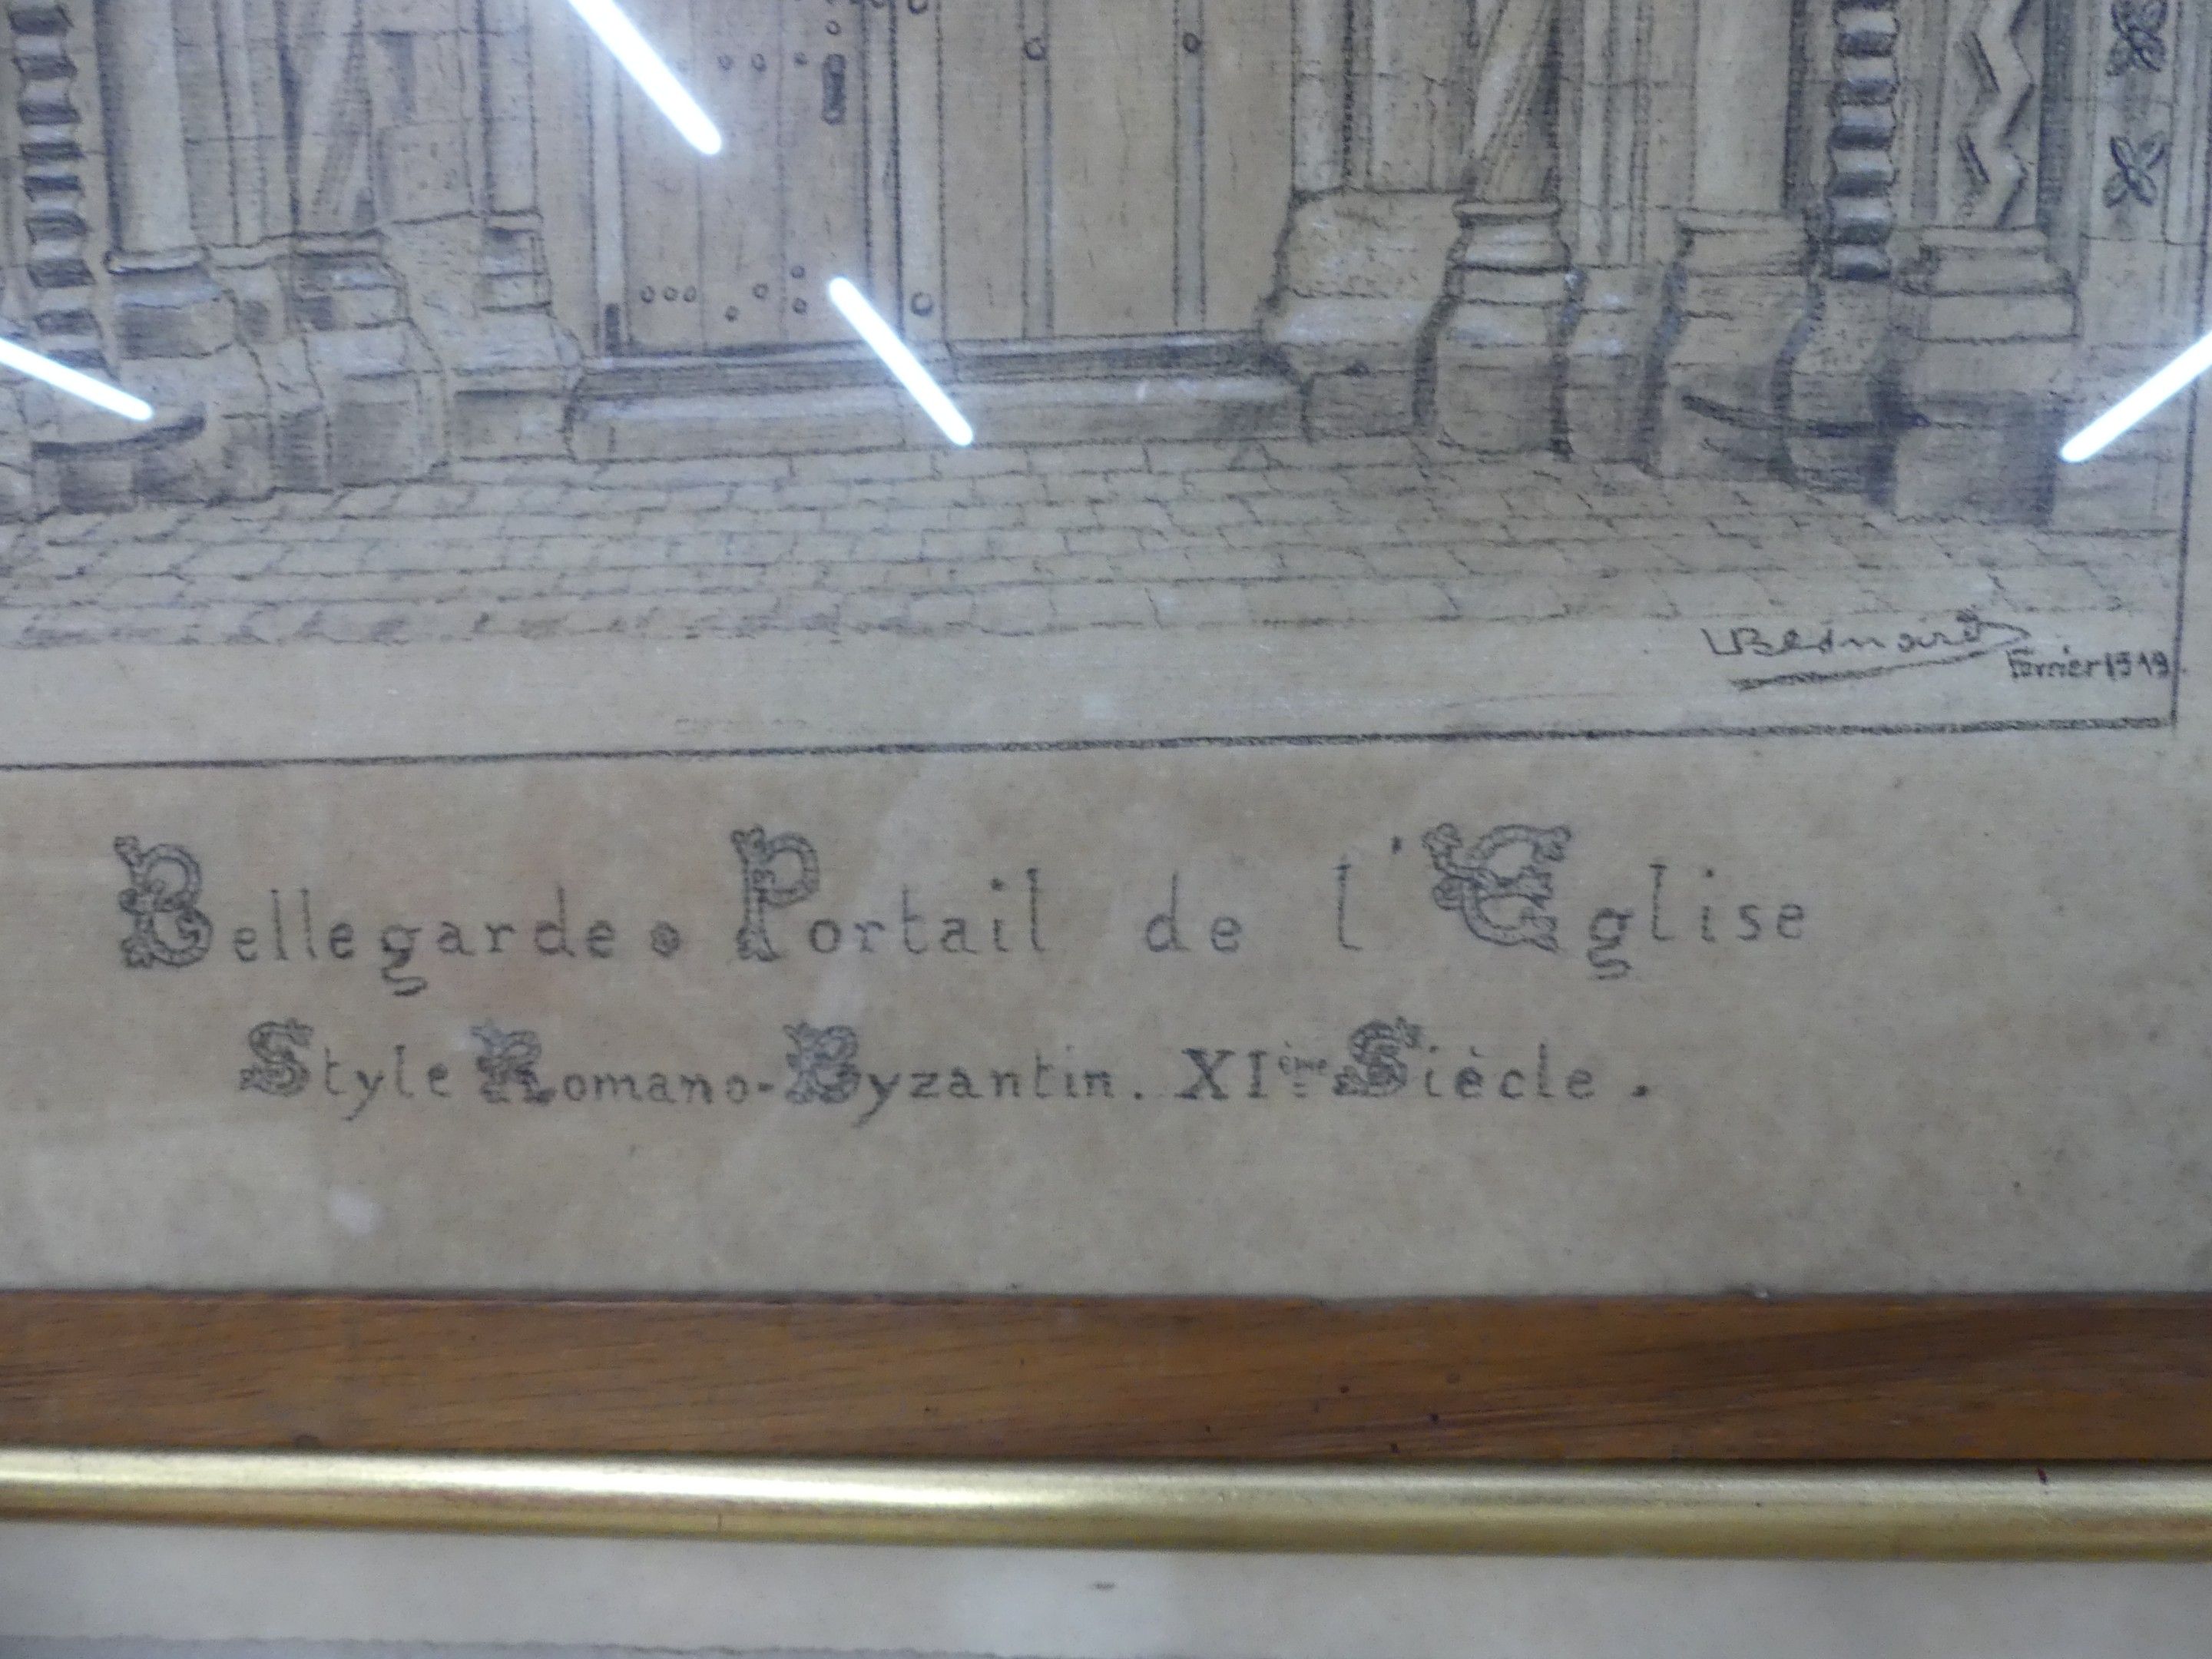 Bernard
Février 1919
Bellegarde • Portail de l'Eglise
Style Romano-Byzantin. XIème Siècle.